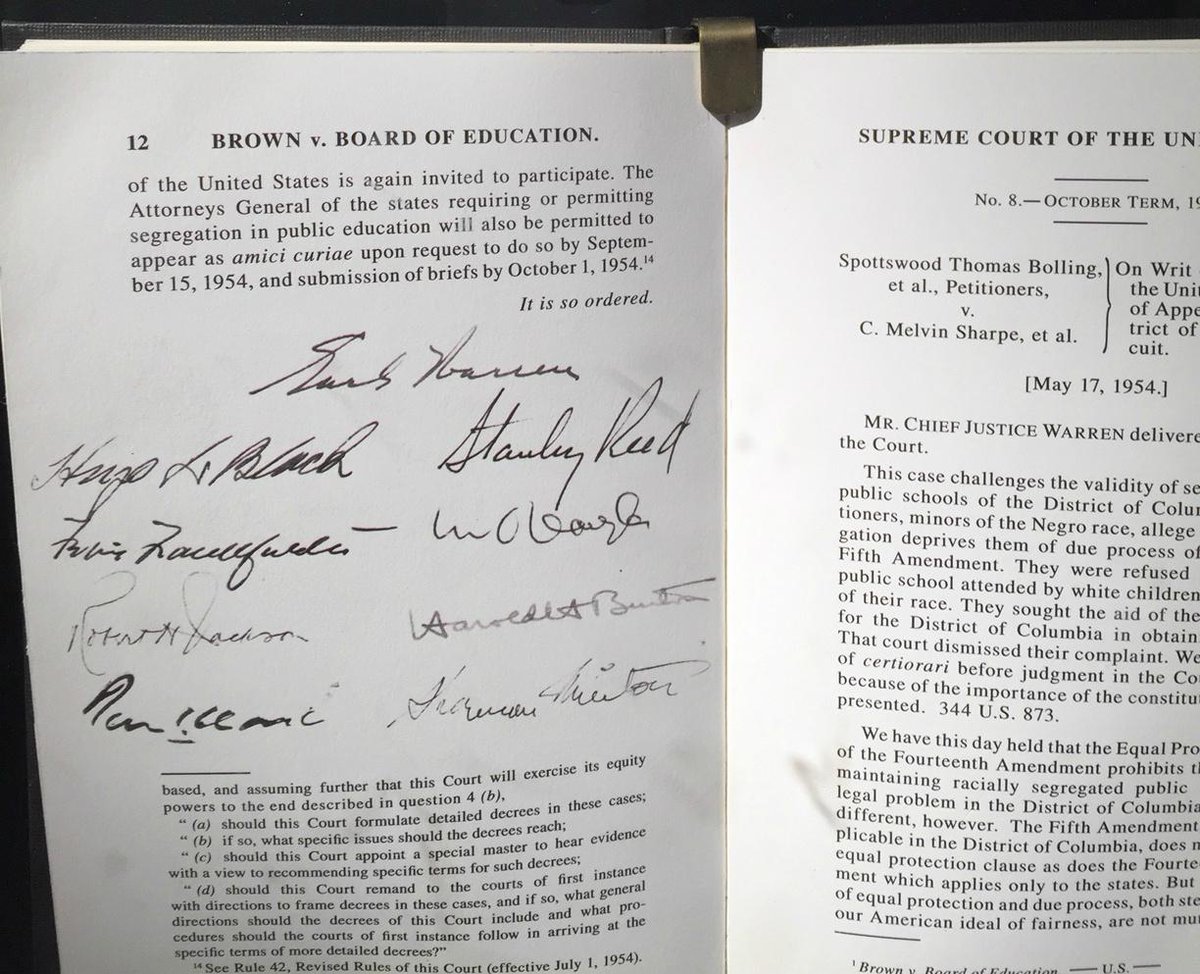 12 BROWN v. BOARD OF EDUCATION.
of the United States is again invited to participate. The
Attorneys General of the states requiring or permitting
segregation in public education will also be permitted to
appear as amici curiae upon request to do so by Septem-
ber 15, 1954, and submission of briefs by October 1, 1954.¹⁴
It is so ordered.
Earl Warren
Hugo L Black
Stanley Reed
Felix Frankfurter
Wm O Douglas
Robert H Jackson
Harold H Burton
Tom C Clark
Sherman Minton
based, and assuming further that this Court will exercise its equity
powers to the end described in question 4 (b),
“ (a) should this Court formulate detailed decrees in these cases;
“ (b) if so, what specific issues should the decrees reach;
“ (c) should this Court appoint a special master to hear evidence
with a view to recommending specific terms for such decrees;
“ (d) should this Court remand to the courts of first instance
with directions to frame decrees in these cases, and if so, what general
directions should the decrees of this Court include and what pro-
cedures should the courts of first instance follow in arriving at the
specific terms of more detailed decrees?”
¹⁴ See Rule 42, Revised Rules of this Court (effective July 1, 1954).
SUPREME COURT OF THE UN
No. 8.—OCTOBER TERM, 19
Spottswood Thomas Bolling,
et al., Petitioners,
v.
C. Melvin Sharpe, et al.
On Writ
the Unit
of Appe
trict of
cuit.
[May 17, 1954.]
MR. CHIEF JUSTICE WARREN delivere
the Court.
This case challenges the validity of se
public schools of the District of Colu
tioners, minors of the Negro race, allege
gation deprives them of due process of
Fifth Amendment. They were refused
public school attended by white children
of their race. They sought the aid of the
for the District of Columbia in obtain
That court dismissed their complaint. We
of certiorari before judgment in the Co
because of the importance of the constitu
presented. 344 U.S. 873.
We have this day held that the Equal Pro
of the Fourteenth Amendment prohibits t
maintaining racially segregated public
legal problem in the District of Columbia
different, however. The Fifth Amendment
plicable in the District of Columbia, does n
equal protection clause as does the Fourte
ment which applies only to the states. But
of equal protection and due process, both ste
our American ideal of fairness, are not mu
¹ Brown v. Board of Education, — U.S. —